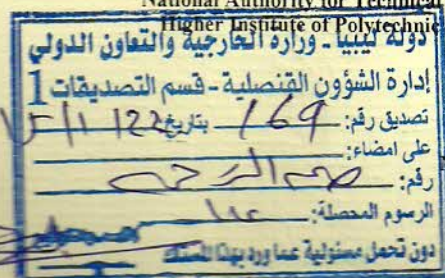 National Authority for Technical
Higher Institute of Polytechnic
دولة ليبيا - وزارة الخارجية والتعاون الدولي
إدارة الشؤون القنصلية - قسم التصديقات 1
تصديق رقم: 169 بتاريخ
على امضاء:
رقم:
الرسوم المحصلة:
دون تحمل مسئولية عما ورد بهذا المستند